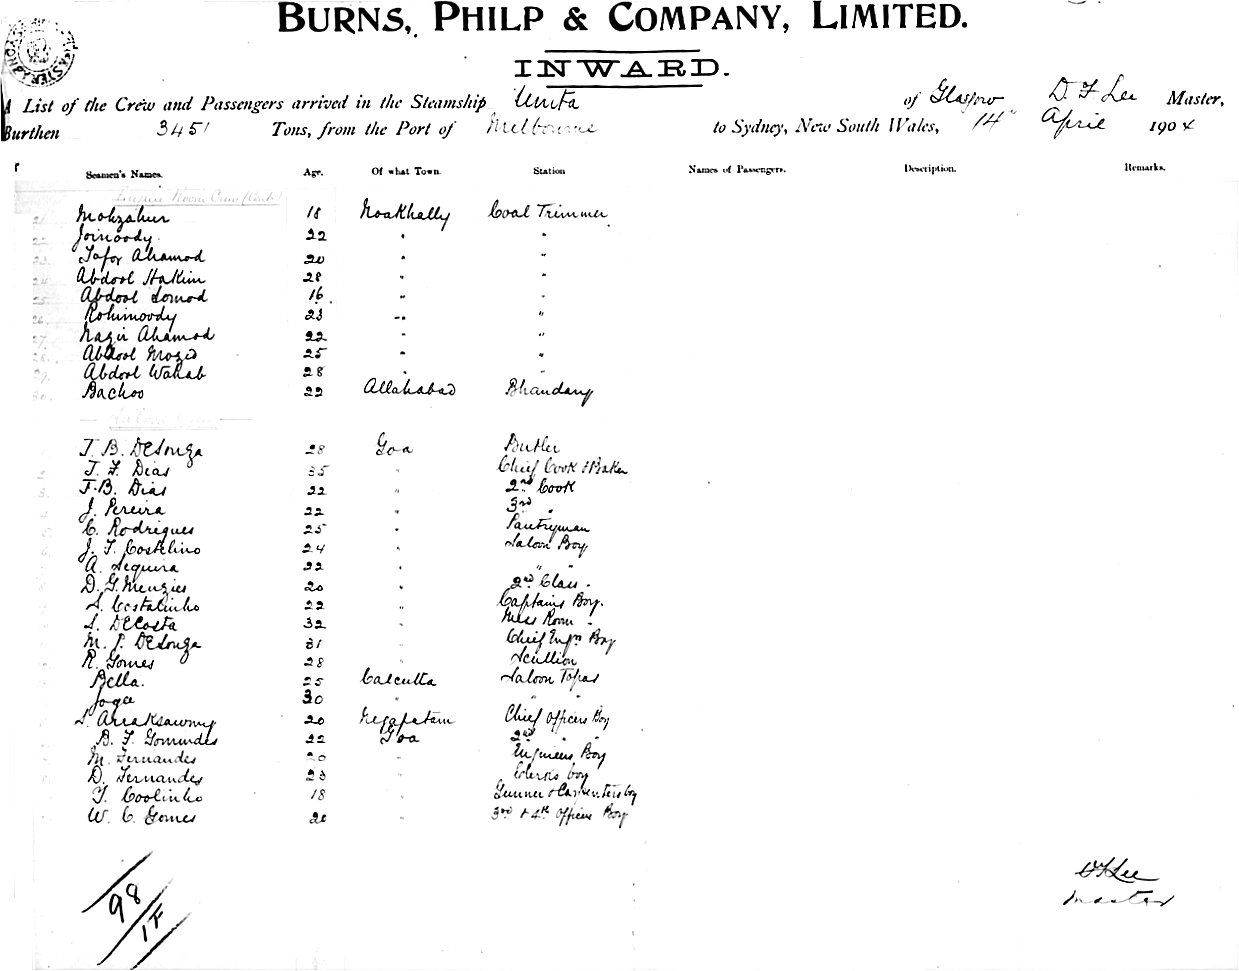 BURNS, PHILP & COMPANY, LIMITED.
INWARD.
A List of the Crew and Passengers arrived in the Steamship Umta of Glasgow D. F Lee Master,
Burthen 3451 Tons, from the Port of Melbourne to Sydney, New South Wales, 14" April 1904
Seamen's Names. Age. Of what Town. Station Names of Passengers. Description. Remarks.
Engine Room Crew (Contd)
21. Mohzahur 18 Noakhally Coal Trimmer
22. Joinoody. 22 " "
23. Tafor Ahamod 20 " "
24. Abdool Hakim 28 " "
25. Abdool Somod 16 " "
26. Rohimoody 23 " "
27. Nazir Ahamod 22 " "
28. Abdool Mozid 25 " "
29. Abdool Wahab 28 " "
30. Bachoo 22 Allahabad Bhandary
Saloon
J. B. DeSouza 28 Goa Butler
2. J. F. Dias 35 " Chief Cook & Baker
3. J. B. Dias 22 " 2nd Cook
4. J. Pereira 22 " 3rd "
5. C. Rodrigues 25 " Pantryman
6. J. F. Costelino 24 " Saloon Boy
A. Sequira 22 " " "
D. G. Menzies 20 " 2nd Class "
S. Costalinho 22 " Captains Boy.
S. DeCosta 32 " Mess Room "
M. P. DeSouza 31 " Chief Engrs Boy
R. Gomes 28 " Scullion
Bella. 25 Calcutta Saloon Topas
Jogee 30 " " "
S. Arraksawmy 20 Negapatam Chief Officers Boy
B. F. Gomindes 22 Goa 2nd " "
M. Fernandes 20 " Engineers Boy
D. Fernandes 23 " Clerks boy
T. Coolinho 18 " Gunner & Carpenters boy
W. C. Gomes 20 " 3rd & 4th Officers Boy
98
1F
D F Lee
Master